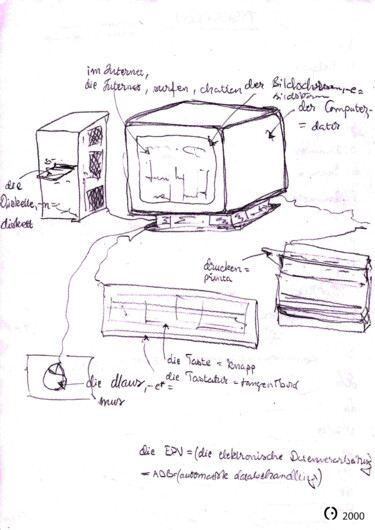 im Internet,
die Internet, surfen, chatten
der Bildschirm, -e =
bildskärm
der Computer =
= dator
die
Diskette, -n =
diskett
drucken =
printa
die Taste = knapp
die Tastatur = tangentbord
die Maus, -e =
mus
die EDV = (die elektronische Datenverarbeitung)
= ADB = (automatisk databehandling)
2000